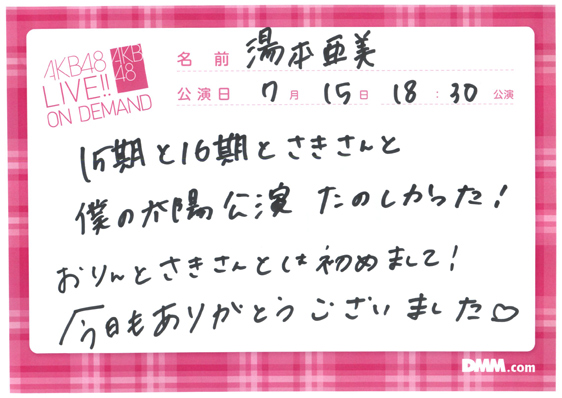 AKB48
LIVE!!
ON DEMAND
AKB
48
名前 湯本亜美
公演日 7月 15日 18:30 公演
15期と16期とさきさんと
僕の太陽公演 たのしかった!
おりんとさきさんとは初めまして!
今日もありがとうございました♡
DMM.com